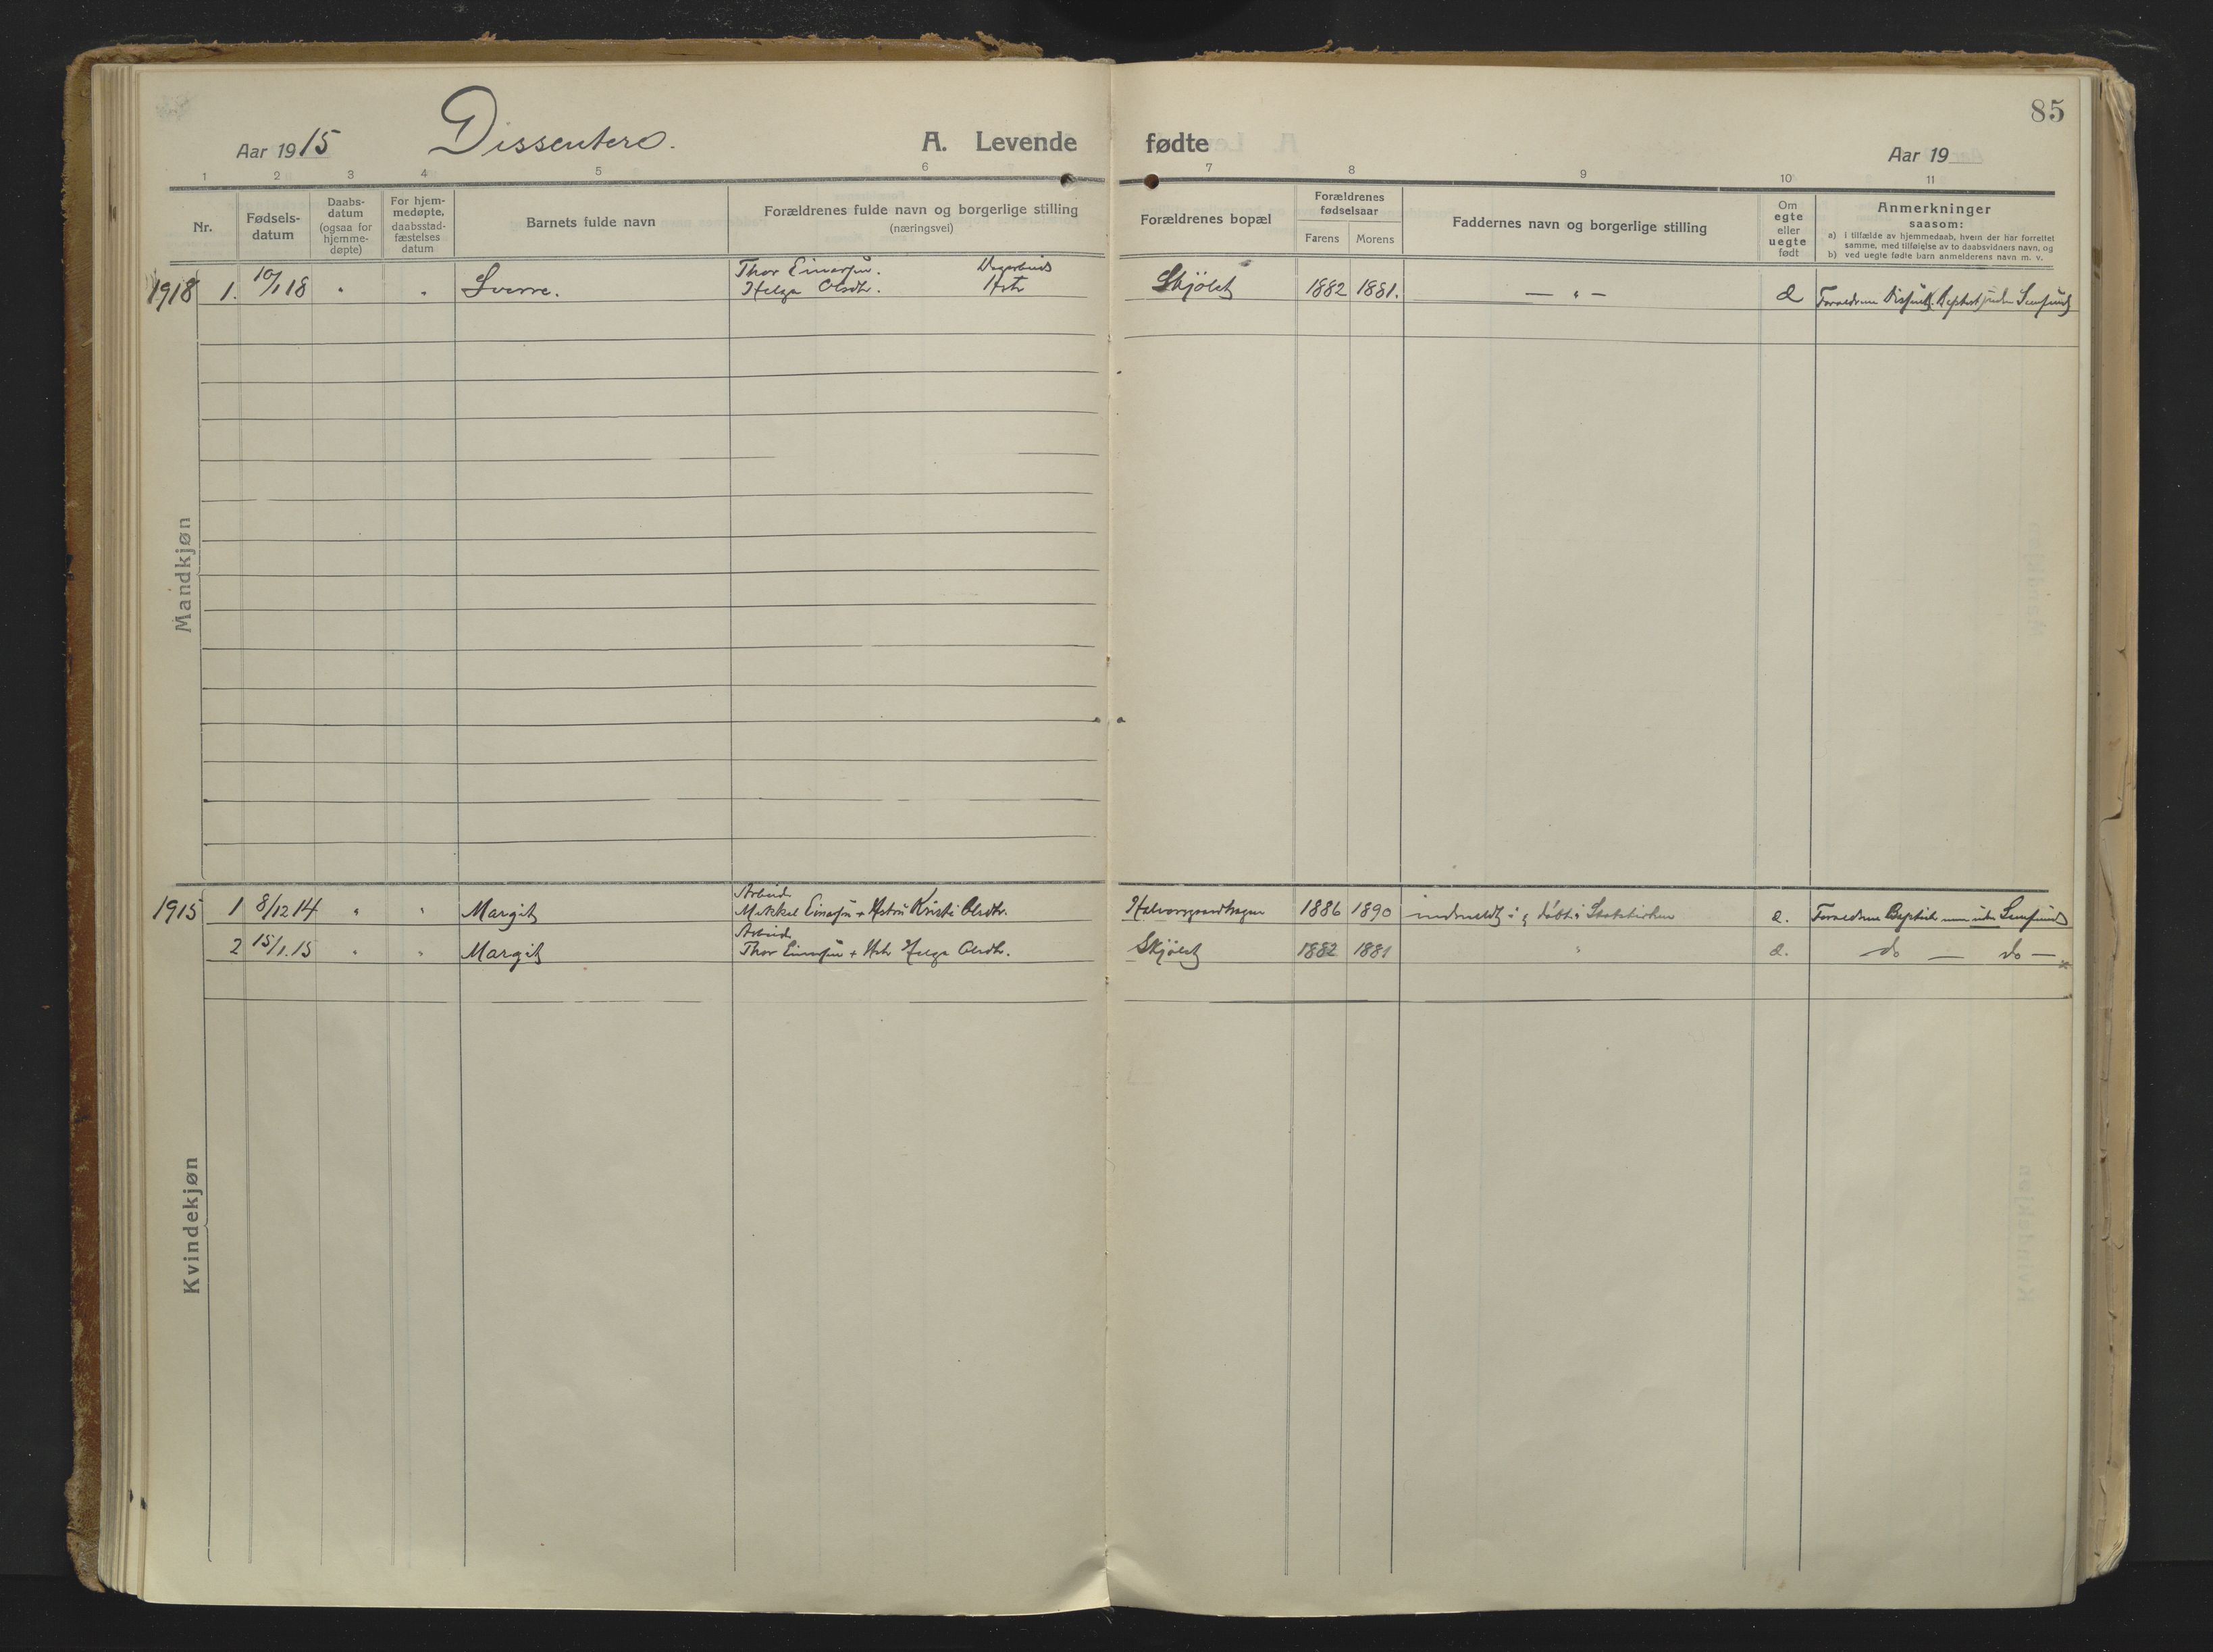 85
Aar 1915 Dissentere. A. Levende fødte Aar 19
1 2 3 4 5 6 7 8 9 10 11
Nr.
Fødsels-
datum
Daabs-
datum
(ogsaa for
hjemme-
døpte)
For hjem-
medøpte,
daabsstad-
fæstelses
datum
Barnets fulde navn
Forældrenes fulde navn og borgerlige stilling
(næringsvei)
Forældrenes bopæl
Forældrenes
fødselsaar
Farens Morens
Faddernes navn og borgerlige stilling
Om
egte
eller
uegte
født
Anmerkninger
saasom:
a) i tilfælde av hjemmedaab, hvem der har forrettet
samme, med tilføielse av to daabsvidners navn, og
b) ved uegte fødte barn anmelderens navn m. v.
Mandkjøn
Thor Einarsen.
1918 1. 10/1 18 " " Sverre. Helga Olsdtr. Skjölet 1882 1881. — " — Forældrene
Kvindekjøn
Arbeid.
1915 1 8/12 14 " " Margit Mikkel Einarsen + Hustru Kristi Olsdtr. 1886 1890 indmeldt i døbt i Statskirken e. Forældrene
Arbeid.
2 15/1. 15 " " Margit Thor Einarsen + Helga Olsdtr. Skjölet 1882 1881 " e. do — do —